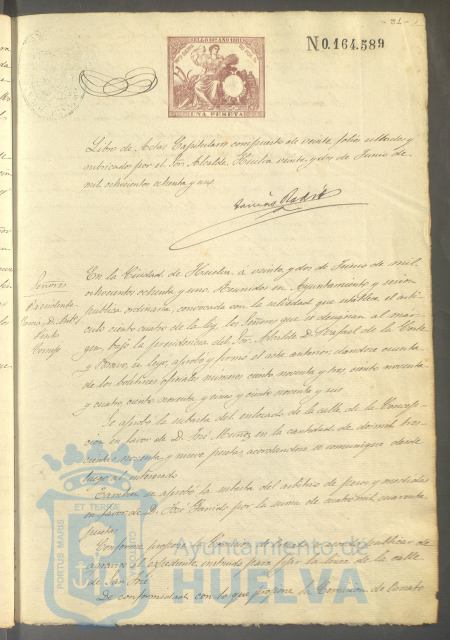 - 31 -
SELLO 11º AÑO 1881
UNA PESETA
N 0.164.589
Libro de Actas Capitulares compuesto de veinte folios utiles y
rubricado por el Sor. Alcalde. Huelva veinte y dos de Junio de
mil ochocientos ochenta y uno.
Señores
Presidente
En la Ciudad de Huelva, a veinte y dos de Junio de mil
ochocientos ochenta y uno. Reunidos en Ayuntamiento y sesion
publica ordinaria, convocada con la antelacion que establece el arti-
culo ciento cuatro de la ley, los Señores que se designan al mar-
gen, bajo la presidencia del Sor. Alcalde D. Rafael de la Corte
y Bravo, se leyó, aprobó y firmó el acta anterior, dandose cuenta
de los boletines oficiales numeros ciento noventa y tres, ciento noventa
y cuatro, ciento noventa y cinco y ciento noventa y seis.
Se aprobó la subasta del enlosado de la calle de la Concep-
cion en favor de D. José Muñoz en la cantidad de dos mil tres-
cientas noventa y nueve pesetas, acordandose se comunique desde
luego al interesado.
Tambien se aprobó la subasta del arbitrio de pesos y medidas
en favor de D. José por la suma de cuatro mil cuarenta
pesetas.
Conforme propone la Comision
el expediente instruido para fijar la linea de la calle
de San José.
De conformidad con lo que propone la Comision de Ornato
ET TERRÆ
PORTUS MARIS
CUSTODIA
Ayuntamiento de
HUELVA